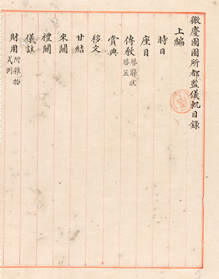 徽慶園園所都監儀軌目錄
上編
時日
座目
傳敎 啓辭狀啓並
賞典
移文
甘結
來關
禮關
儀註
財用 附雜物式例